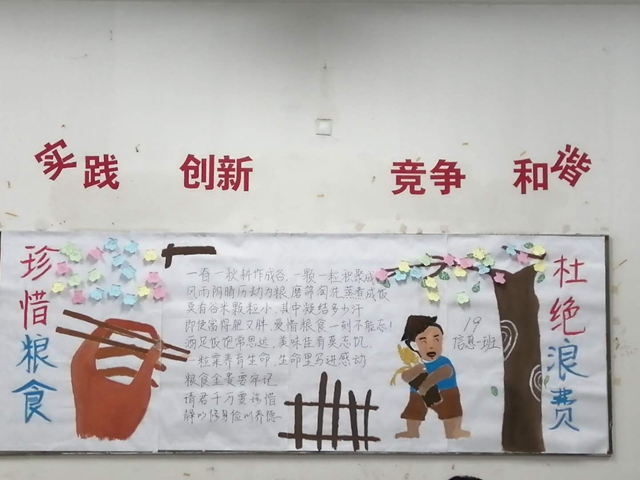 实践 创新 竞争 和谐
珍惜粮食
一春一秋耕作成谷,一颗一粒积聚成
风雨阴晴历劫为粮,磨筛淘洗蒸煮成饭
莫看谷米颗粒小,其中凝结多少汗
即使富得肥又胖,爱惜粮食一刻不能忘!
满足饭饱常思远,美味佳肴莫忘饥
一粒粟养育生命,生命里写进感动
粮食金贵要牢记
请君千万要珍惜
静以修身俭以养德
19
信息一班
杜绝浪费